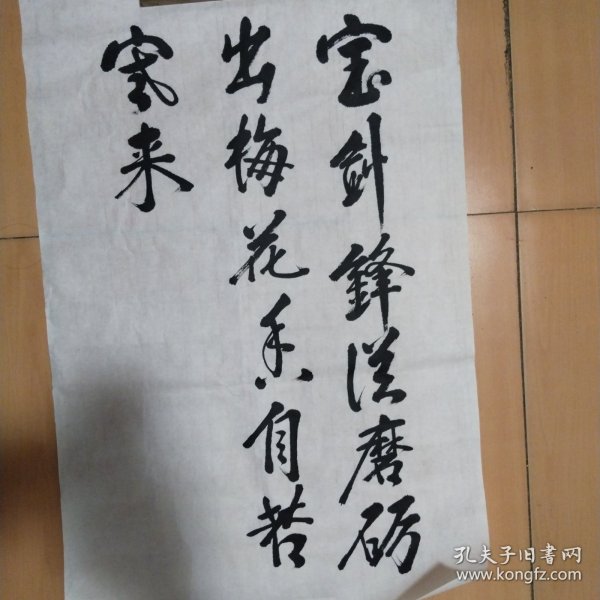 宝剑锋从磨砺
出梅花香自苦
寒来
孔夫子旧书网
www.kongfz.com